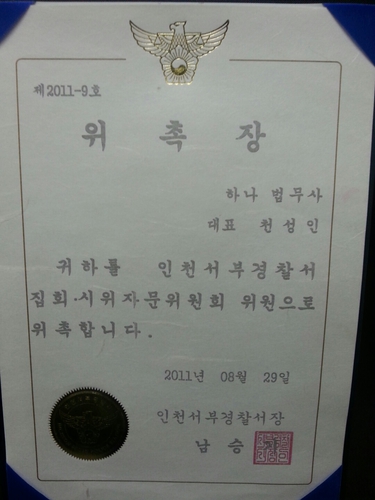 제2011-9호
위 촉 장
하나 법무사
대표 천성인
귀하를 인천서부경찰서
집회·시위자문위원회 위원으로
위촉합니다.
2011년 08월 29일
인천서부경찰서장
남 승